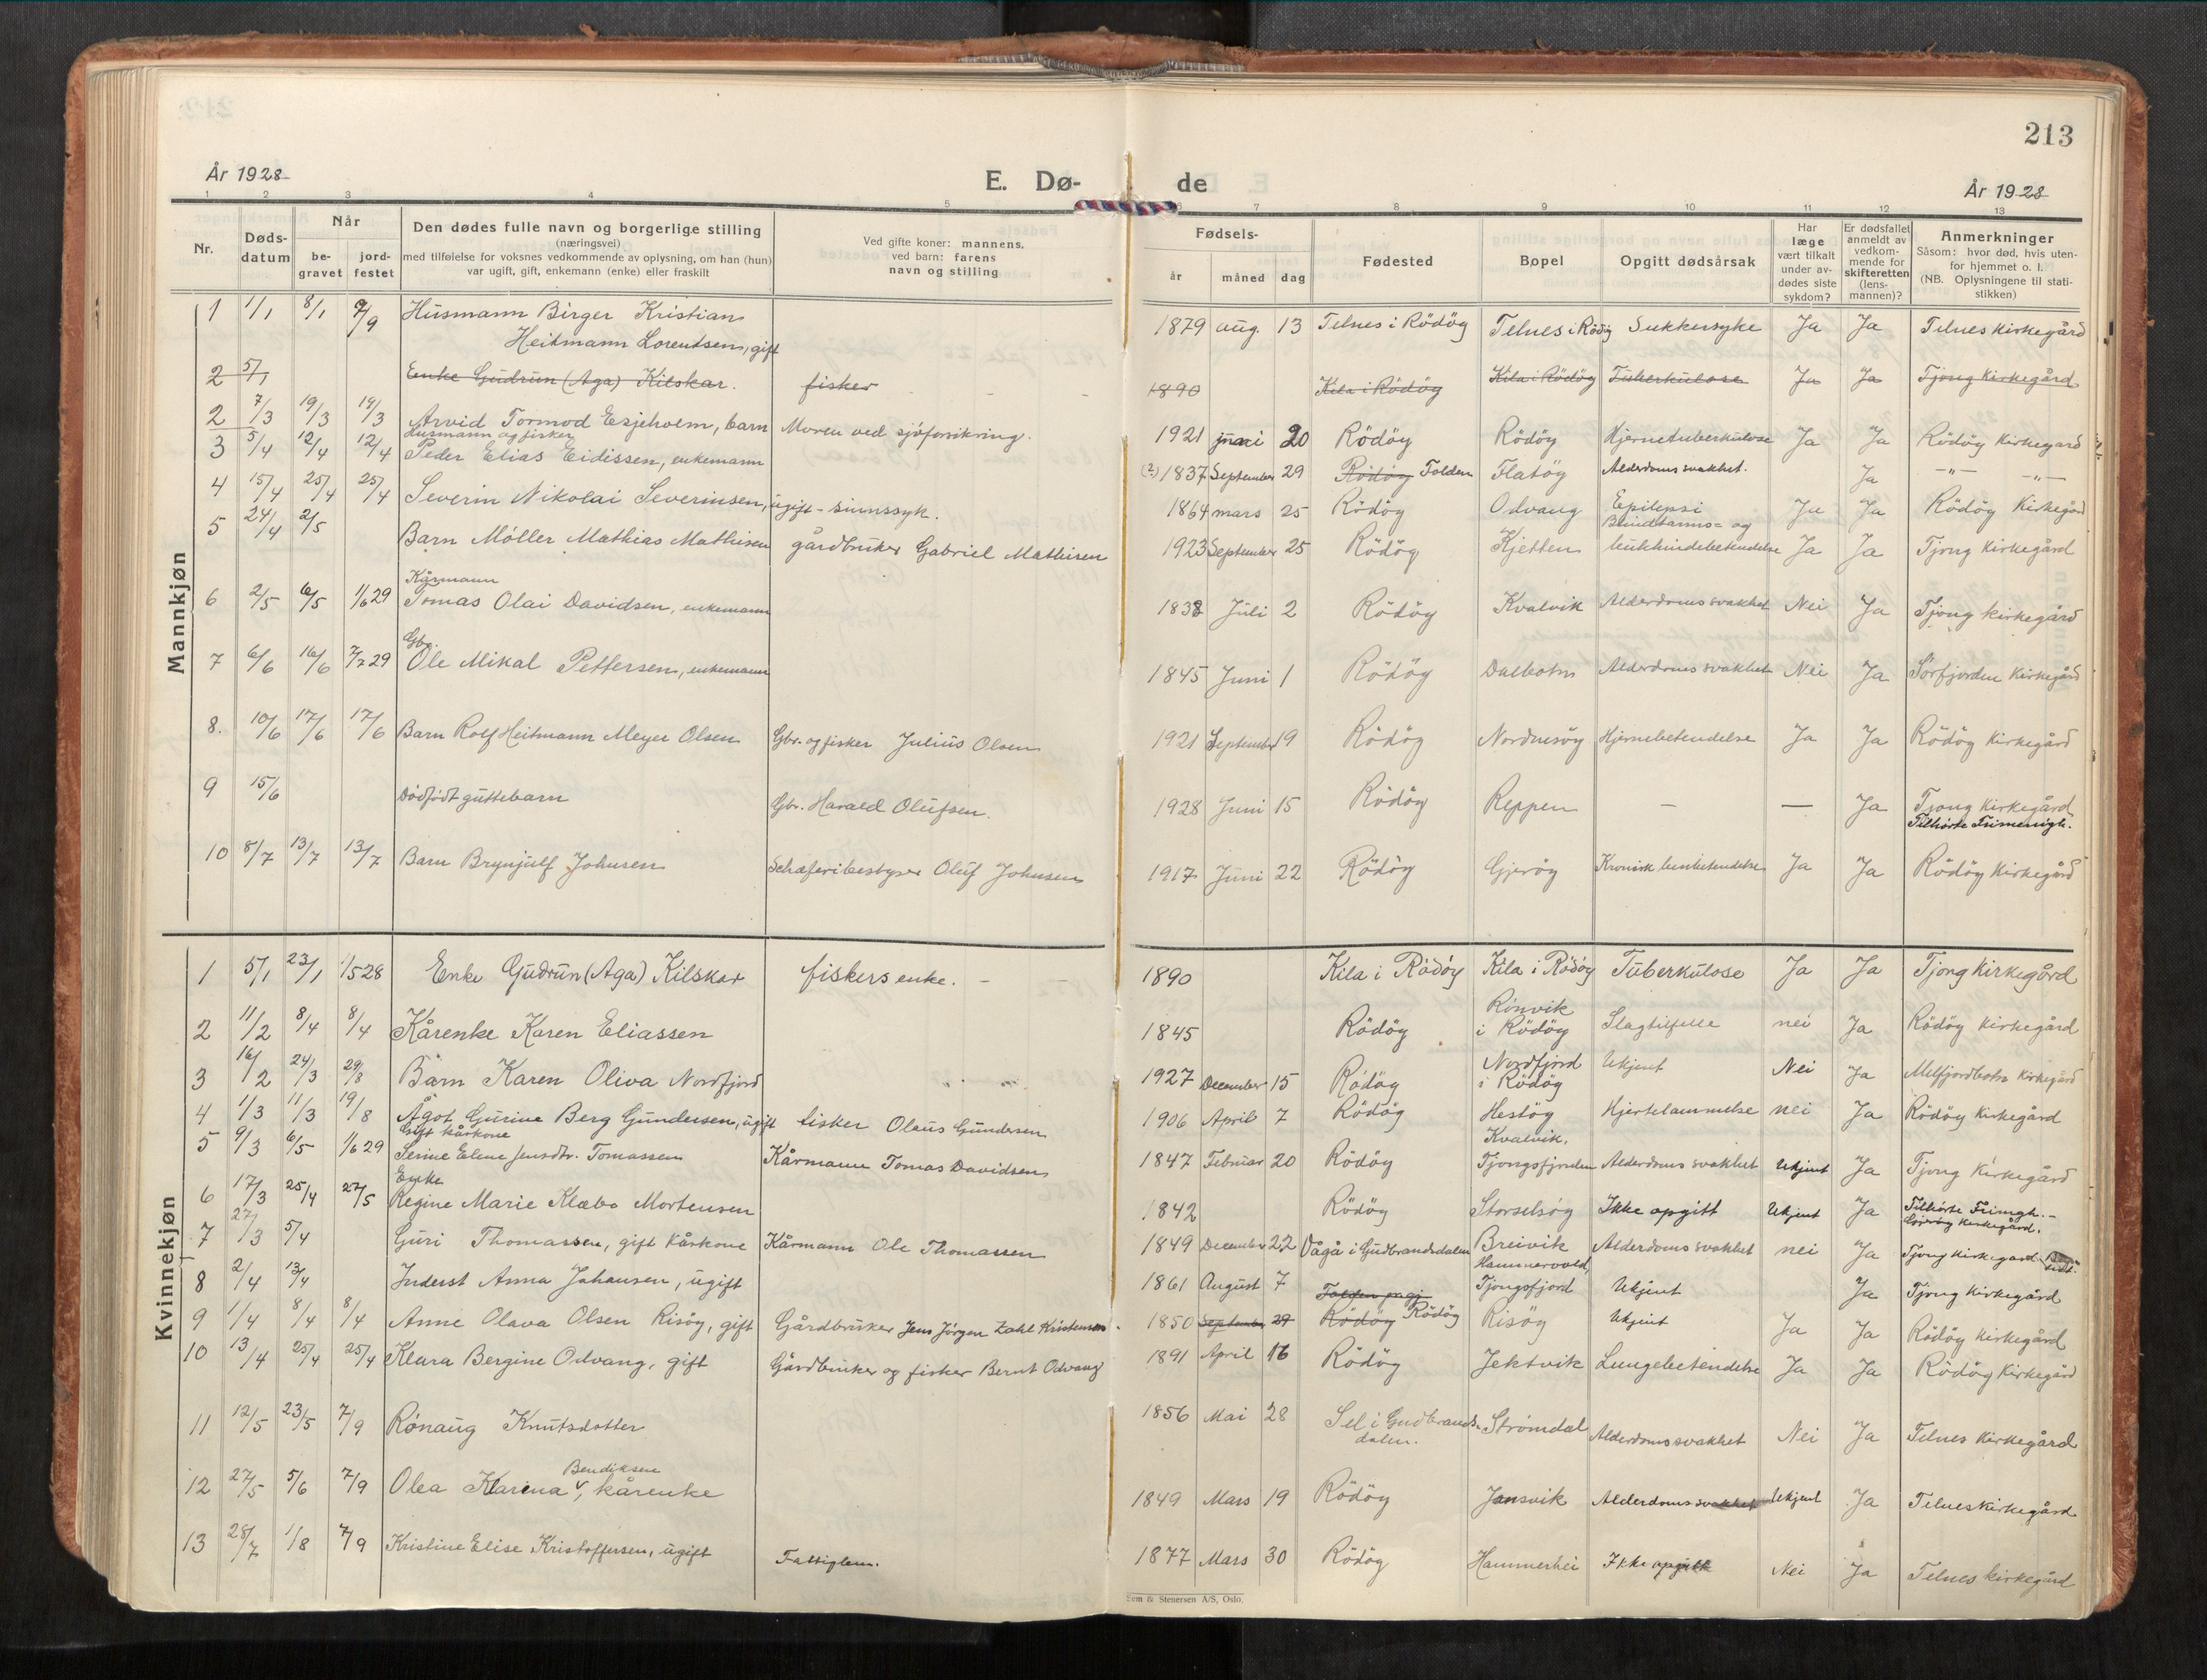 213
År 1928
E. Dø-
de
År 1928
1 2 3 4 5 6 7 8 9 10 11 12 13
Nr.
Døds-
datum
Når
be-
gravet
jord-
festet
Den dødes fulle navn og borgerlige stilling
(næringsvei)
med tilføielse for voksnes vedkommende av oplysning, om han (hun)
var ugift, gift, enkemann (enke) eller fraskilt
Ved gifte koner: mannens,
ved barn: farens
navn og stilling
Fødsels-
år
måned
dag
Fødested
Bopel
Opgitt dødsårsak
Har
læge
vært tilkalt
under av-
dødes siste
sykdom?
Er dødsfallet
anmeldt av
vedkom-
mende for
skifteretten
(lens-
mannen)?
Anmerkninger
Såsom: hvor død, hvis uten-
for hjemmet o. l.
(NB. Oplysningene til stati-
stikken)
Mannkjøn
1 1/1 8/1 7/9 Husmann Birger Kristian
Heitmann Lorentsen, gift
1879 aug. 13 Telnes i Rödöy Telnes i Rödöy Sukkersyke Ja Ja Telnes kirkegård
2 5/1 Enke Gudrun (Aga) Kilskar. fisker 1890 Kila i Rödöy Kila i Rödöy Tuberkulose Ja Ja Tjong Kirkegård
2 7/3 19/3 19/3 Arvid Tormod Esjeholm, barn Moren ved sjöforsikring. 1921 juni 20 Rödöy Rödöy Hjernetuberkulose Ja Ja Rödöy Kirkegård
Husmann og fisker
3 5/4 12/4 12/4 Peder Elias Eidissen, enkemann (?) 1837 September 29 Rödöy Folden Flatöy Alderdomssvakhet. Ja —"— —"—
4 15/4 25/4 25/4 Severin Nikolai Severinsen, ugift - sinnssyk. 1864 mars 25 Rödöy Odvang Epilepsi Ja Ja Rödöy Kirkegård
5 24/4 2/5 Barn Möller Mathias Mathisen gårdbruker Gabriel Mathisen 1923 September 25 Rödöy Kjetten Blindtarms- og
bukhindebetendelse Ja Ja Tjong Kirkegård
Kårmann
6 2/5 6/5 1/6 29 Tomas Olai Davidsen, enkemann 1838 Juli 2 Rödöy Kvalvik Alderdomssvakhet Nei Ja Tjong kirkegård
Gbr.
7 6/6 16/6 7/7 29 Ole Mikal Pettersen, enkemann 1845 Juni 1 Rödöy Dalbotn Alderdomssvakhet Nei Ja Sörfjorden Kirkegård
8. 10/6 17/6 17/6 Barn Rolf Heitmann Meyer Olsen Gbr. og fisker Julius Olsen 1921 September 19 Rödöy Nordnesöy Hjernebetendelse Ja Ja Rödöy Kirkegård
9 15/6 Dödfödt guttebarn Gbr. Harald Olufsen. 1928 Juni 15 Rödöy Reppen — — Ja Tjong Kirkegård
Tilhörte Frimenigh.
10 8/7 13/7 13/7 Barn Brynjulf Johnsen Schæferibestyrer Oluf Johnsen 1917 Juni 22 Rödöy Gjeröy Kronisk benbetendelse Ja Ja Rödöy Kirkegård
Kvinnekjøn
1 5/1 23/1 1/5 28 Enke Gudrun (Aga) Kilskar fiskers enke. 1890 Kila i Rödöy Kila i Rödöy Tuberkulose Ja Ja Tjong Kirkegård
2 11/2 8/4 8/4 Kårenke Karen Eliassen 1845 Rödöy Rönvik
i Rödöy Slagtilfelle nei Ja Rödöy Kirkegård
3 16/2 24/3 29/8 Barn Karen Oliva Nordfjord 1927 December 15 Rödöy Nordfjord
i Rödöy Ukjent Nei Ja Melfjordbotn Kirkegård
4 1/3 11/3 19/8 Ågot Gurine Berg Gundersen, ugift fisker Olaus Gundersen 1906 April 7 Rödöy Hestöy Hjertelammelse nei Ja Rödöy Kirkegård
Gift kårkone
5 9/3 6/5 1/6 29 Serine Elene Jensdtr. Tomassen Kårmann Tomas Davidsen 1847 Februar 20 Rödöy Kvalvik,
Tjongsfjorden Alderdomssvakhet Ukjent Ja Tjong Kirkegård
Enke
6 17/3 25/4 27/5 Regine Marie Klæbo Mortensen 1842 Rödöy Storselsöy Ikke opgitt Ukjent Ja Tilhörte Frimgh. -
Kirkegård.
7 27/3 5/4 Guri Thomassen, gift Kårkone Kårmann Ole Thomassen 1849 December 22 Vågå i Gudbrandsdalen Breivik Alderdomssvakhet nei Ja Tjong Kirkegård
8 2/4 13/4 Inderst Anna Johansen, ugift 1861 August 7 Hammervold,
Tjongsfjord Ukjent Ja Tjong Kirkegård
9 1/4 8/4 8/4 Anne Olava Olsen Risöy, gift Gårdbruker Jens Jörgen Zahl Kristensen. 1850 September 29 Rödöy Rödöy Risöy Ukjent Ja Ja Rödöy Kirkegård
10 13/4 25/4 25/4 Klara Bergine Odvang, gift Gårdbruker og fisker Bernt Odvang 1891 April 16 Rödöy Jektvik Lungebetendelse Ja Ja Rödöy Kirkegård
11 12/5 23/5 7/9 Rönaug Knutsdotter 1856 Mai 28 Sel i Gudbrands-
dalen. Strömdal Alderdomssvakhet Nei Ja Telnes Kirkegård
Bendiksen
12 27/5 5/6 7/9 Olea Karina, kårenke 1849 Mars 19 Rödöy Jansvik Alderdomssvakhet Ukjent Ja Telnes Kirkegård
13 28/7 1/8 7/9 Kristine Elise Kristoffersen, ugift Fattiglem. 1877 Mars 30 Rödöy Hammerhei Ikke opgitt Nei Ja Telnes kirkegård
Sem & Stenersen A/S, Oslo.